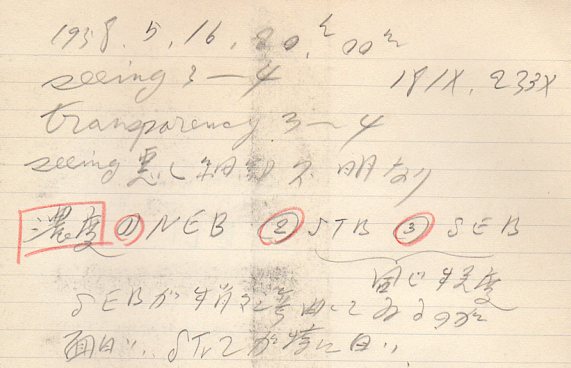 1938. 5, 16, 20h 00m
seeing 3—4 191X, 233X
transparency 3〜4
seeing 悪し 細部不明なり
濃度 ① NEB ② STB ③ SEB
同じ程度
SEBが
面白い. STrZが特に白い